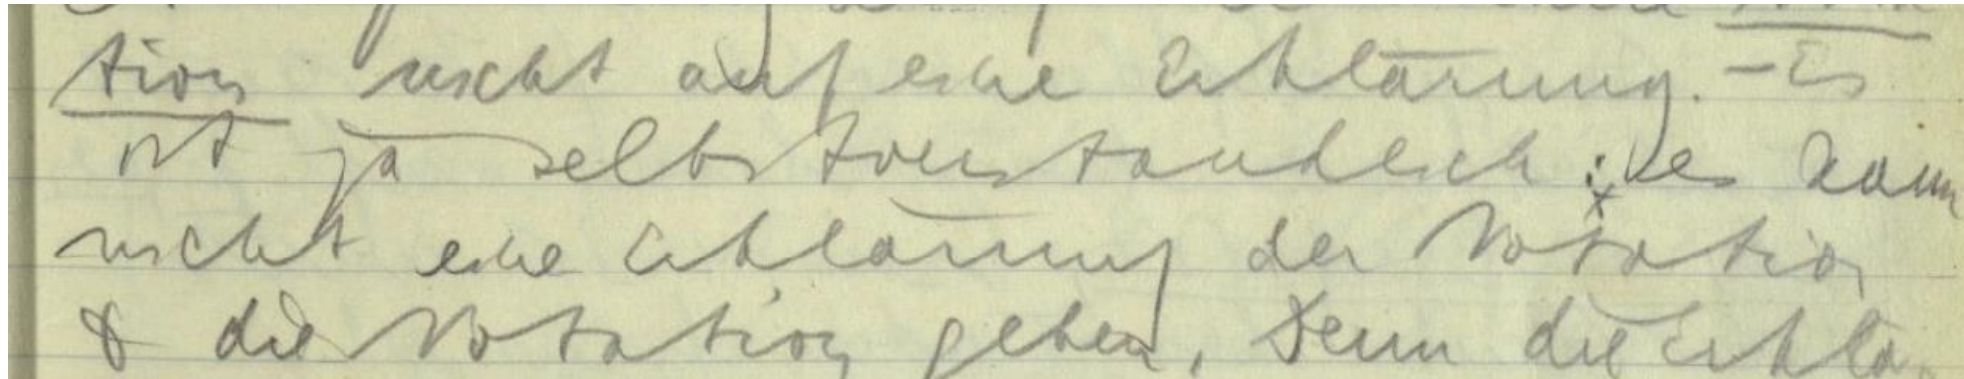 tion nicht auf eine Erklärung. – Es
ist ja selbstverständlich: es kann
nicht eine Erklärung der Notation
& die Notation geben. Denn die Erklä-